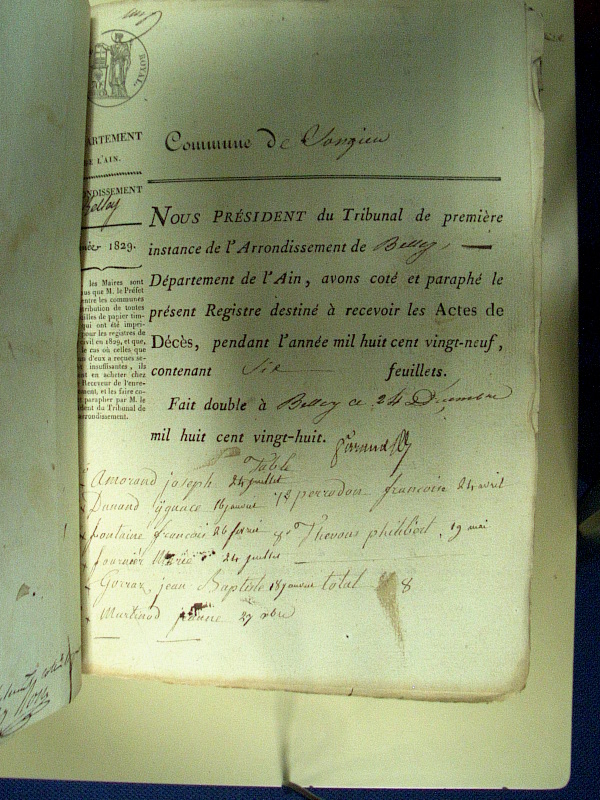 ROYAL.
ARTEMENT
E L'AIN.
NDISSEMENT
Belley
née 1829.
les Maires sont
nus que M. le Préfet
entre les communes
tribution de toutes
illes de papier tim-
qui ont été impri-
pour les registres de
ivil en 1829, et que,
le cas où celles que
d'eux a reçues se-
insuffisantes, ils
nt en acheter chez
Receveur de l'enre-
ment, et les faire co-
parapher par M. le
dent du Tribunal de
rrondissement.
Commune de Songieu
NOUS PRÉSIDENT du Tribunal de première
instance de l'Arrondissement de Belley,
Département de l'Ain, avons coté et paraphé le
présent Registre destiné à recevoir les Actes de
Décès, pendant l'année mil huit cent vingt-neuf,
contenant Six feuillets.
Fait double à Belley ce 24 Décembre
mil huit cent vingt-huit.
Table
Amorand joseph 24 juillet
Dunand ygnace 16 janvier 7º perrodon francoise 24 avril
fontaine francois 26 fevrier 8º Thevons philibert, 19 mai
fournier Marie 24 juillet
Gorraz, jean Baptiste 18 janvier total 8
Martinod jeanne 27 xbre